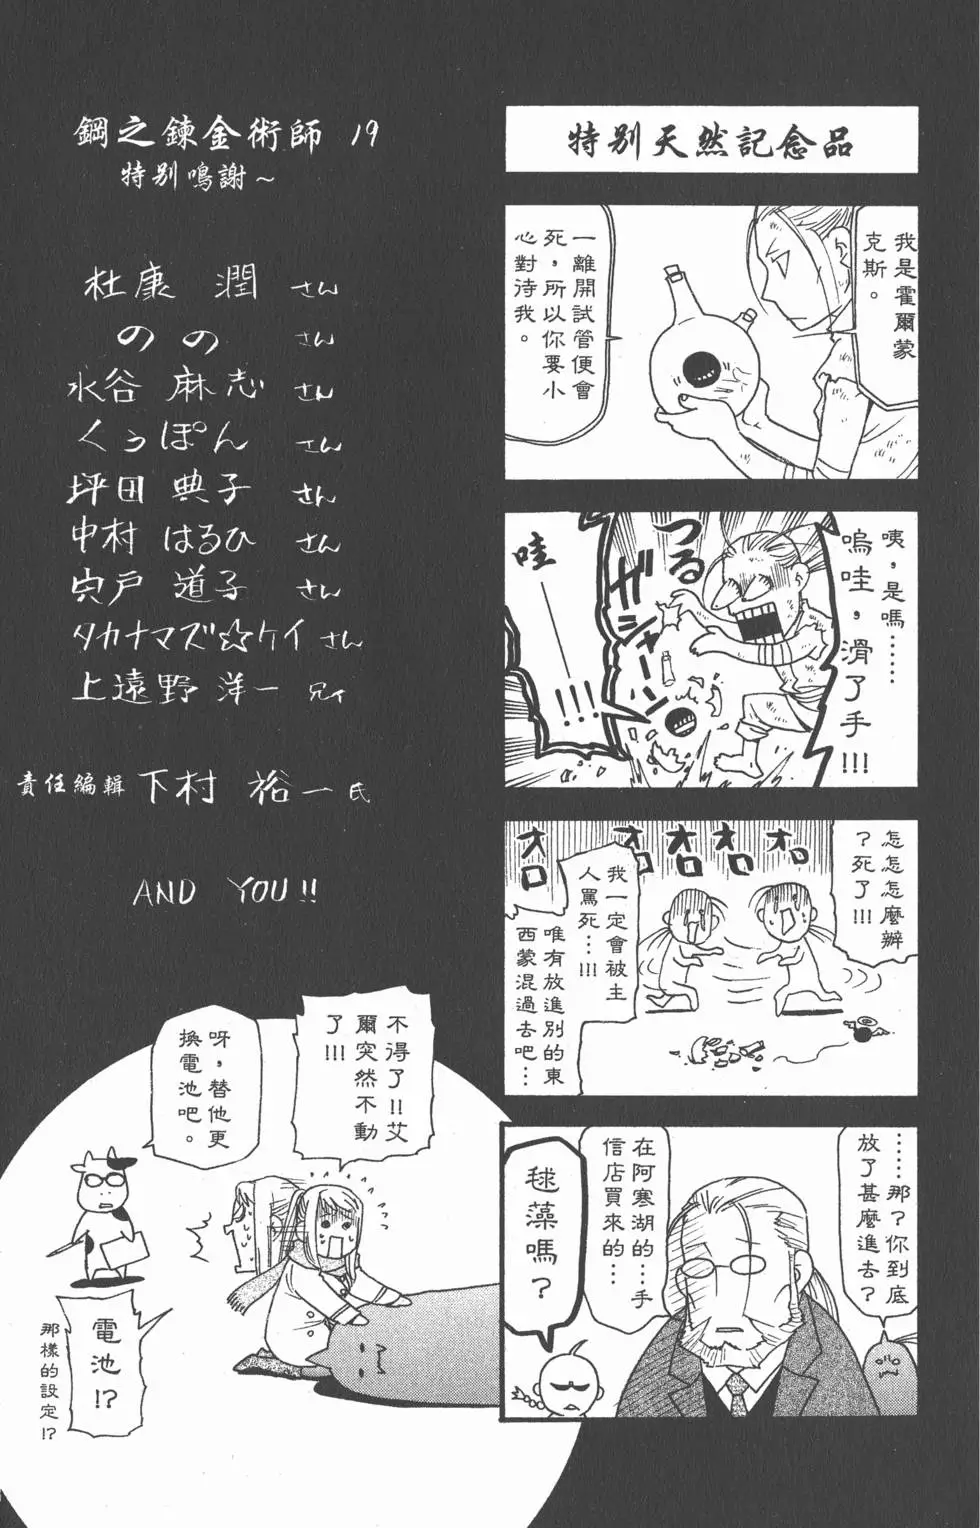 特別天然記念品
我是霍爾蒙
克斯。
一離開試管便會
死，所以你要小
心對待我。
咦，是嗎……
嗚哇，滑了手!!!
つるっ
ガシャーン
哇——!!!
怎怎怎麼辦
?死了!!!
オロ
オロ
オロ
オロ
オロ
我一定會被主
人罵死…!!!
唯有放進別的東
西蒙混過去吧…
……那?你到底
放了甚麼進去?
在阿寒湖的…手
信店買來的…
毬藻嗎?
鋼之鍊金術師 19
特別鳴謝～
杜康 潤 さん
のの さん
水谷 麻志 さん
くぅぽん さん
坪田 典子 さん
中村 はるひ さん
宍戸 道子 さん
タカナマズ☆ケイ さん
上遠野 洋一
責任編輯 下村 裕一 氏
AND YOU!!
不得了!!艾
爾突然不動
了!!!
呀，替他更
換電池吧。
電池!?
那樣的設定!?